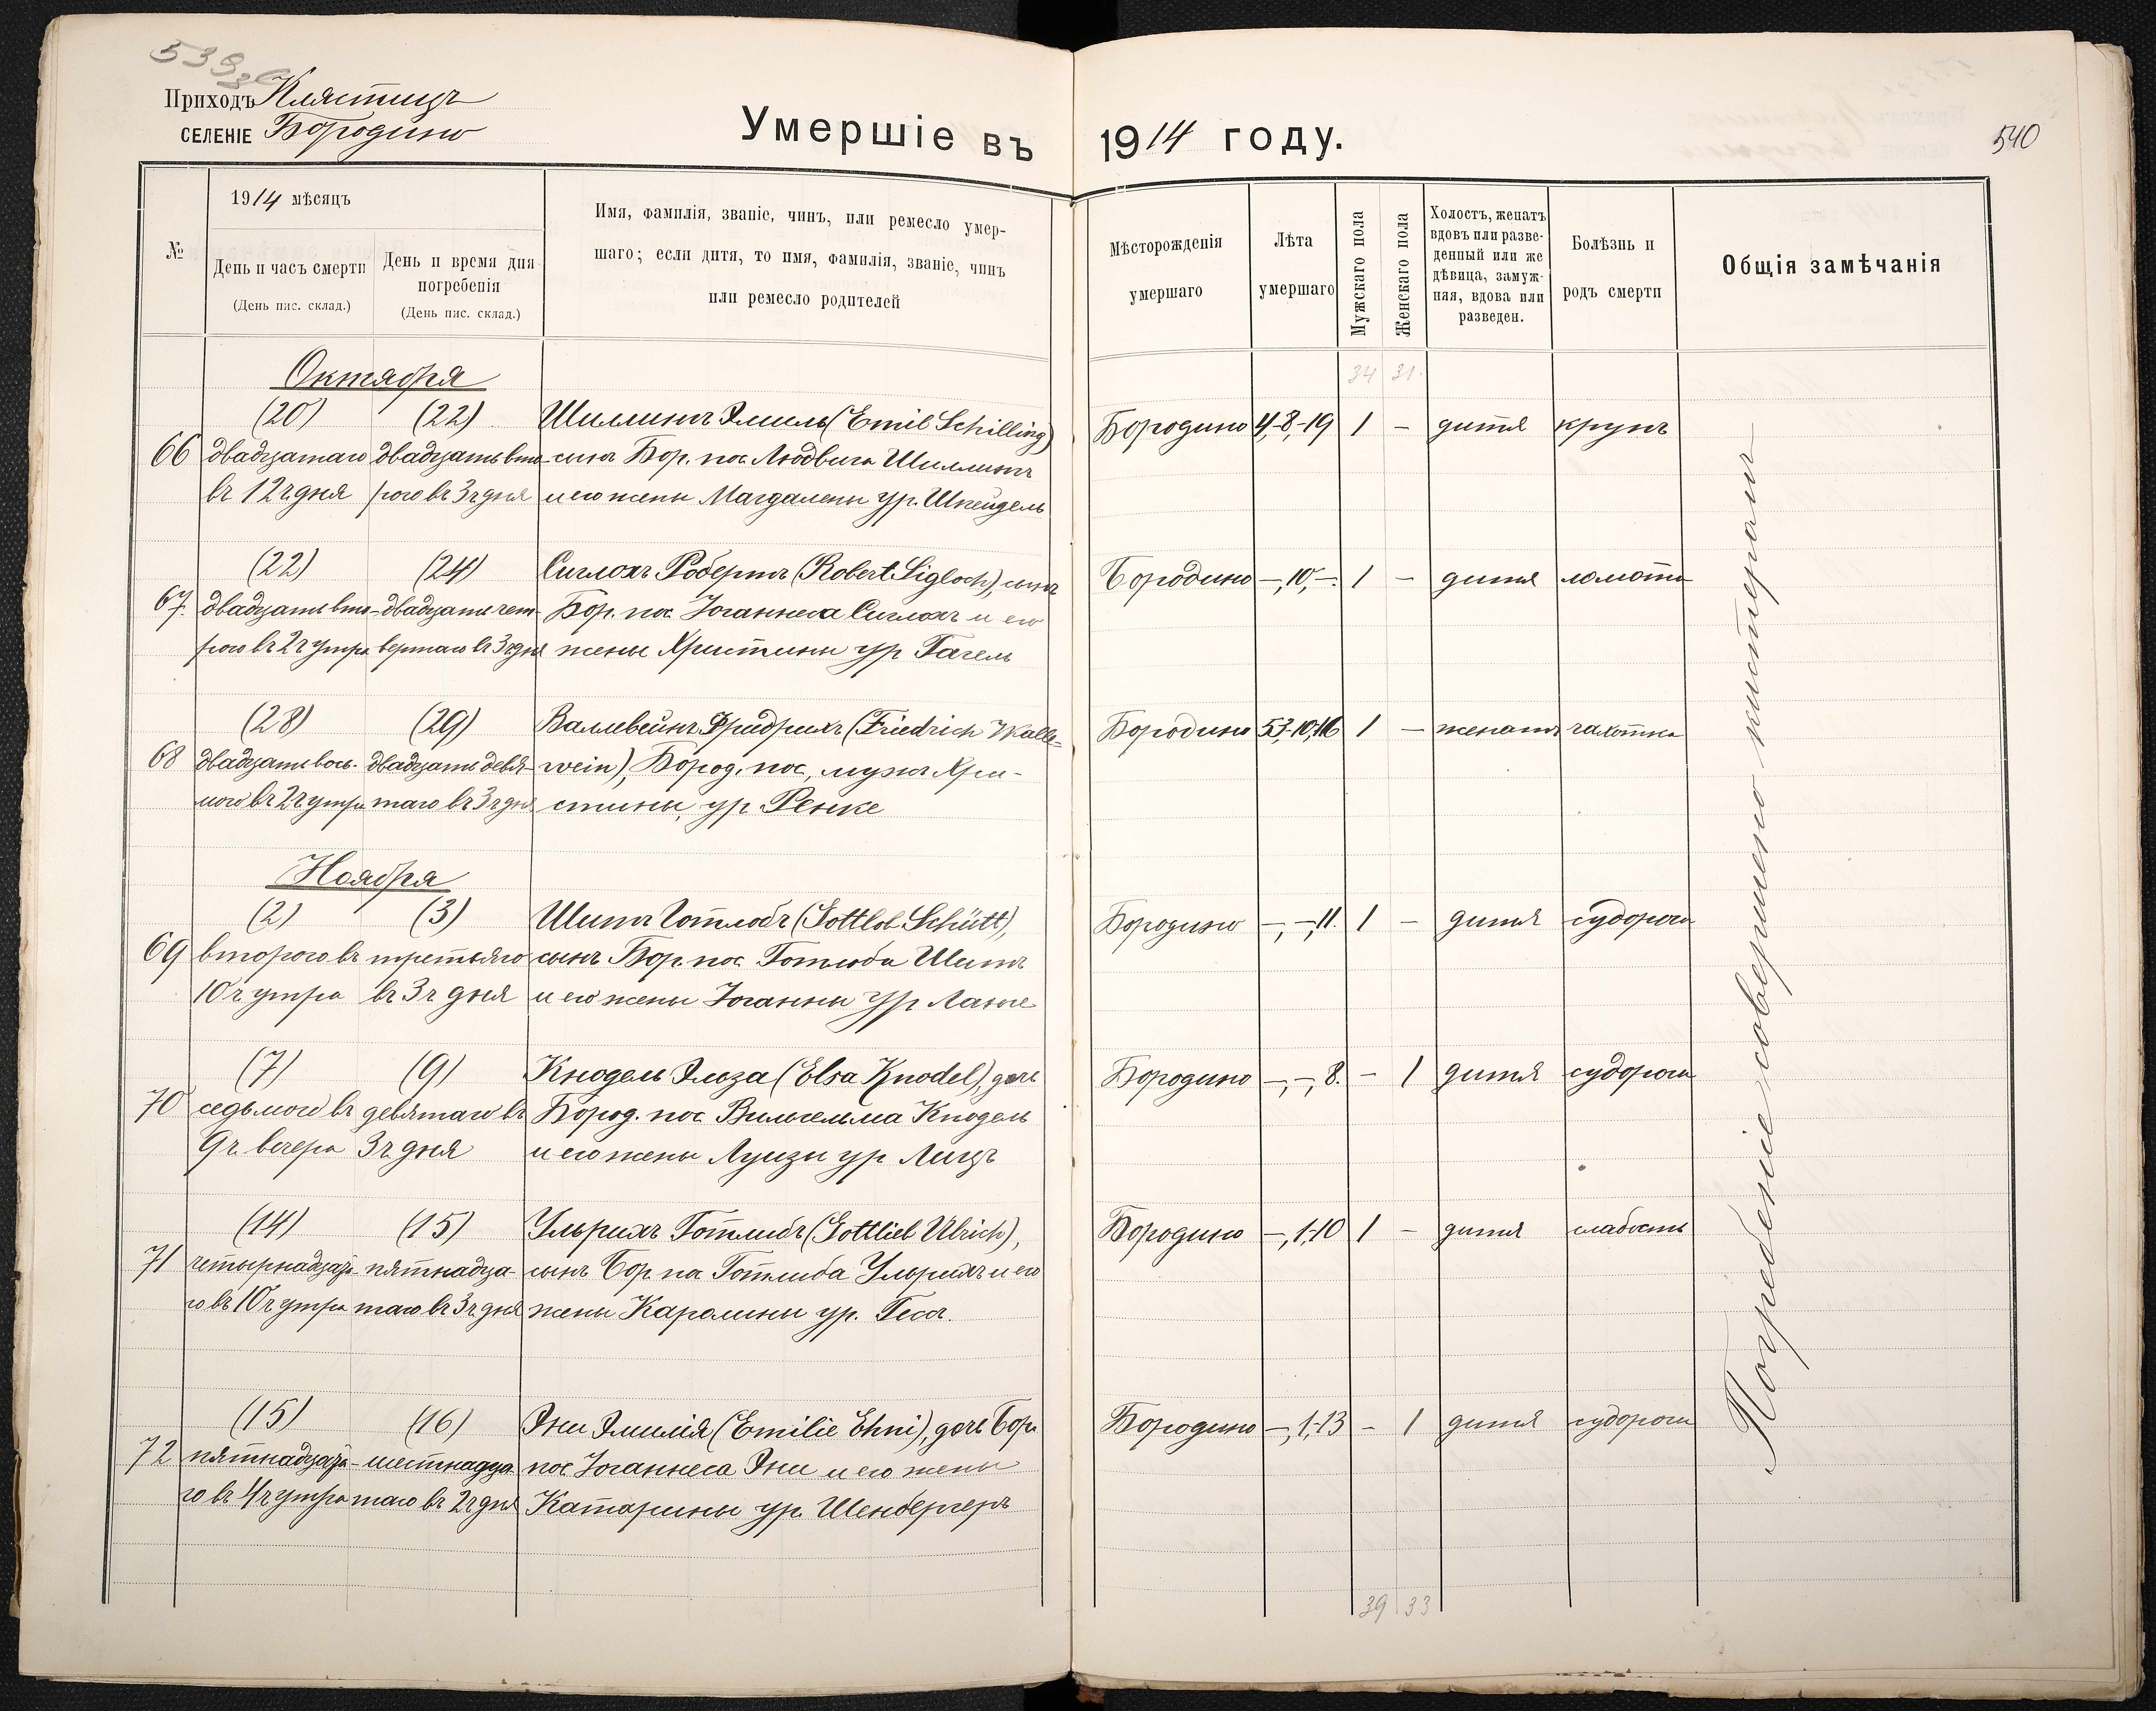 539
Приходъ Клястицъ
СЕЛЕНІЕ Бородино
Умершіе въ 1914 году.
540
№
1914 мѣсяцъ
День и часъ смерти
(День пис. склад.)
День и время дня
погребенія
(День пис. склад.)
Имя, фамилія, званіе, чинъ, или ремесло умер-
шаго; если дитя, то имя, фамилія, званіе, чинъ
или ремесло родителей
Мѣсторожденія
умершаго
Лѣта
умершаго
Мужскаго пола
Женскаго пола
Холостъ, женатъ
вдовъ или разве-
денный или же
дѣвица, замуж-
няя, вдова или
разведен.
Болѣзнь и
родъ смерти
Общія замѣчанія
34 31.
Октября
(20) (22) Шиллингъ Эмиль (Emil Schilling) Бородино 4,-8,-19 1 – дитя крупъ
66 двадцатаго двадцать вто- сынъ Бор. пос. Людвига Шиллингъ
въ 12 ч дня рого въ 3 ч дня и его жены Магдалены ур. Шнейдель
(22) (24) Сиглохъ Робертъ (Robert Sigloch), сынъ Бородино –, 10, –. 1 – дитя ломота
67. двадцать вто- двадцать чет- Бор. пос. Іоганнеса Сиглохъ и его
рого въ 2 ч утра вертаго въ 3 ч дня жены Христины ур Гагель
(28) (29) Валлвейнъ Фридрихъ (Friedrich Walle- Бородино 53,-10,-16 1 – женатъ чахотка
68 двадцать вось- двадцать девя- wein), Бород. пос, мужъ Хри-
мого въ 2 ч утра таго въ 3 ч дня стины, ур. Ренке
Ноября
(2) (3) Шитъ Готлобъ (Gottlob Schütt), Бородино –, –, 11. 1 – дитя судороги
69 второго въ третьяго сынъ Бор. пос Готлоба Шитъ
10 ч утра въ 3 ч дня и его жены Іоганны ур Ланге
(7) (9) Кнодель Эльза (Elsa Knodel), дочь Бородино –, –, 8. – 1 дитя судороги
70 седьмого въ девятаго въ Бород. пос Вильгельма Кнодель
9 ч. вечера 3 ч дня и его жены Луизы ур Лицъ
(14) (15) Ульрихъ Готлибъ (Gottlieb Ulrich), Бородино –, 1,-10 1 – дитя слабость
71 четырнадцата- пятнадца- сынъ Бор. пос Готлиба Ульрихъ и его
го въ 10 ч утра таго въ 3 ч дня жены Каролины ур. Гессъ.
(15) (16) Эни Эмилія (Emilie Ehni), дочь Бор. Бородино –, 1,-13 – 1 дитя судороги
72 пятнадцата- шестнадца- пос Іоганнеса Эни и его жены
го въ 4 ч утра таго въ 2 ч дня Катарины ур. Шенбергеръ
39 33
Погребеніе совершено кистерами